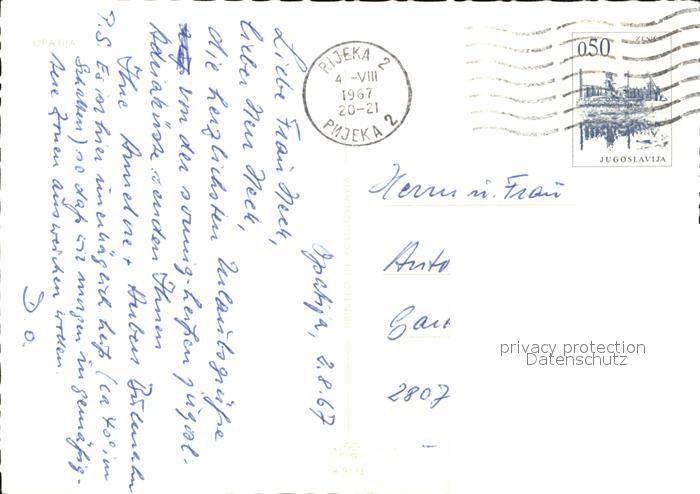 OPATIJA
Opatija, 2.8.67
Liebe Frau Heck,
lieber Herr Heck,
die herzlichsten Urlaubsgrüße
von der sonnig-heißen jugosl.
Adriaküste senden Ihnen
Ihre Annelore + Herbert
P.S. Es ist hier unerträglich heiß (ca 40° im
Schatten) so daß wir morgen in gemäßig-
tere Zonen ausweichen wollen.
D. O.
RIJEKA 2
4-VIII
1967
20-21
РИЈЕКА 2
0,50
ZENICA
JUGOSLAVIJA
Herrn u. Frau
Anto
2807
privacy protection
Datenschutz
PRINTED IN YUGOSLAVIA